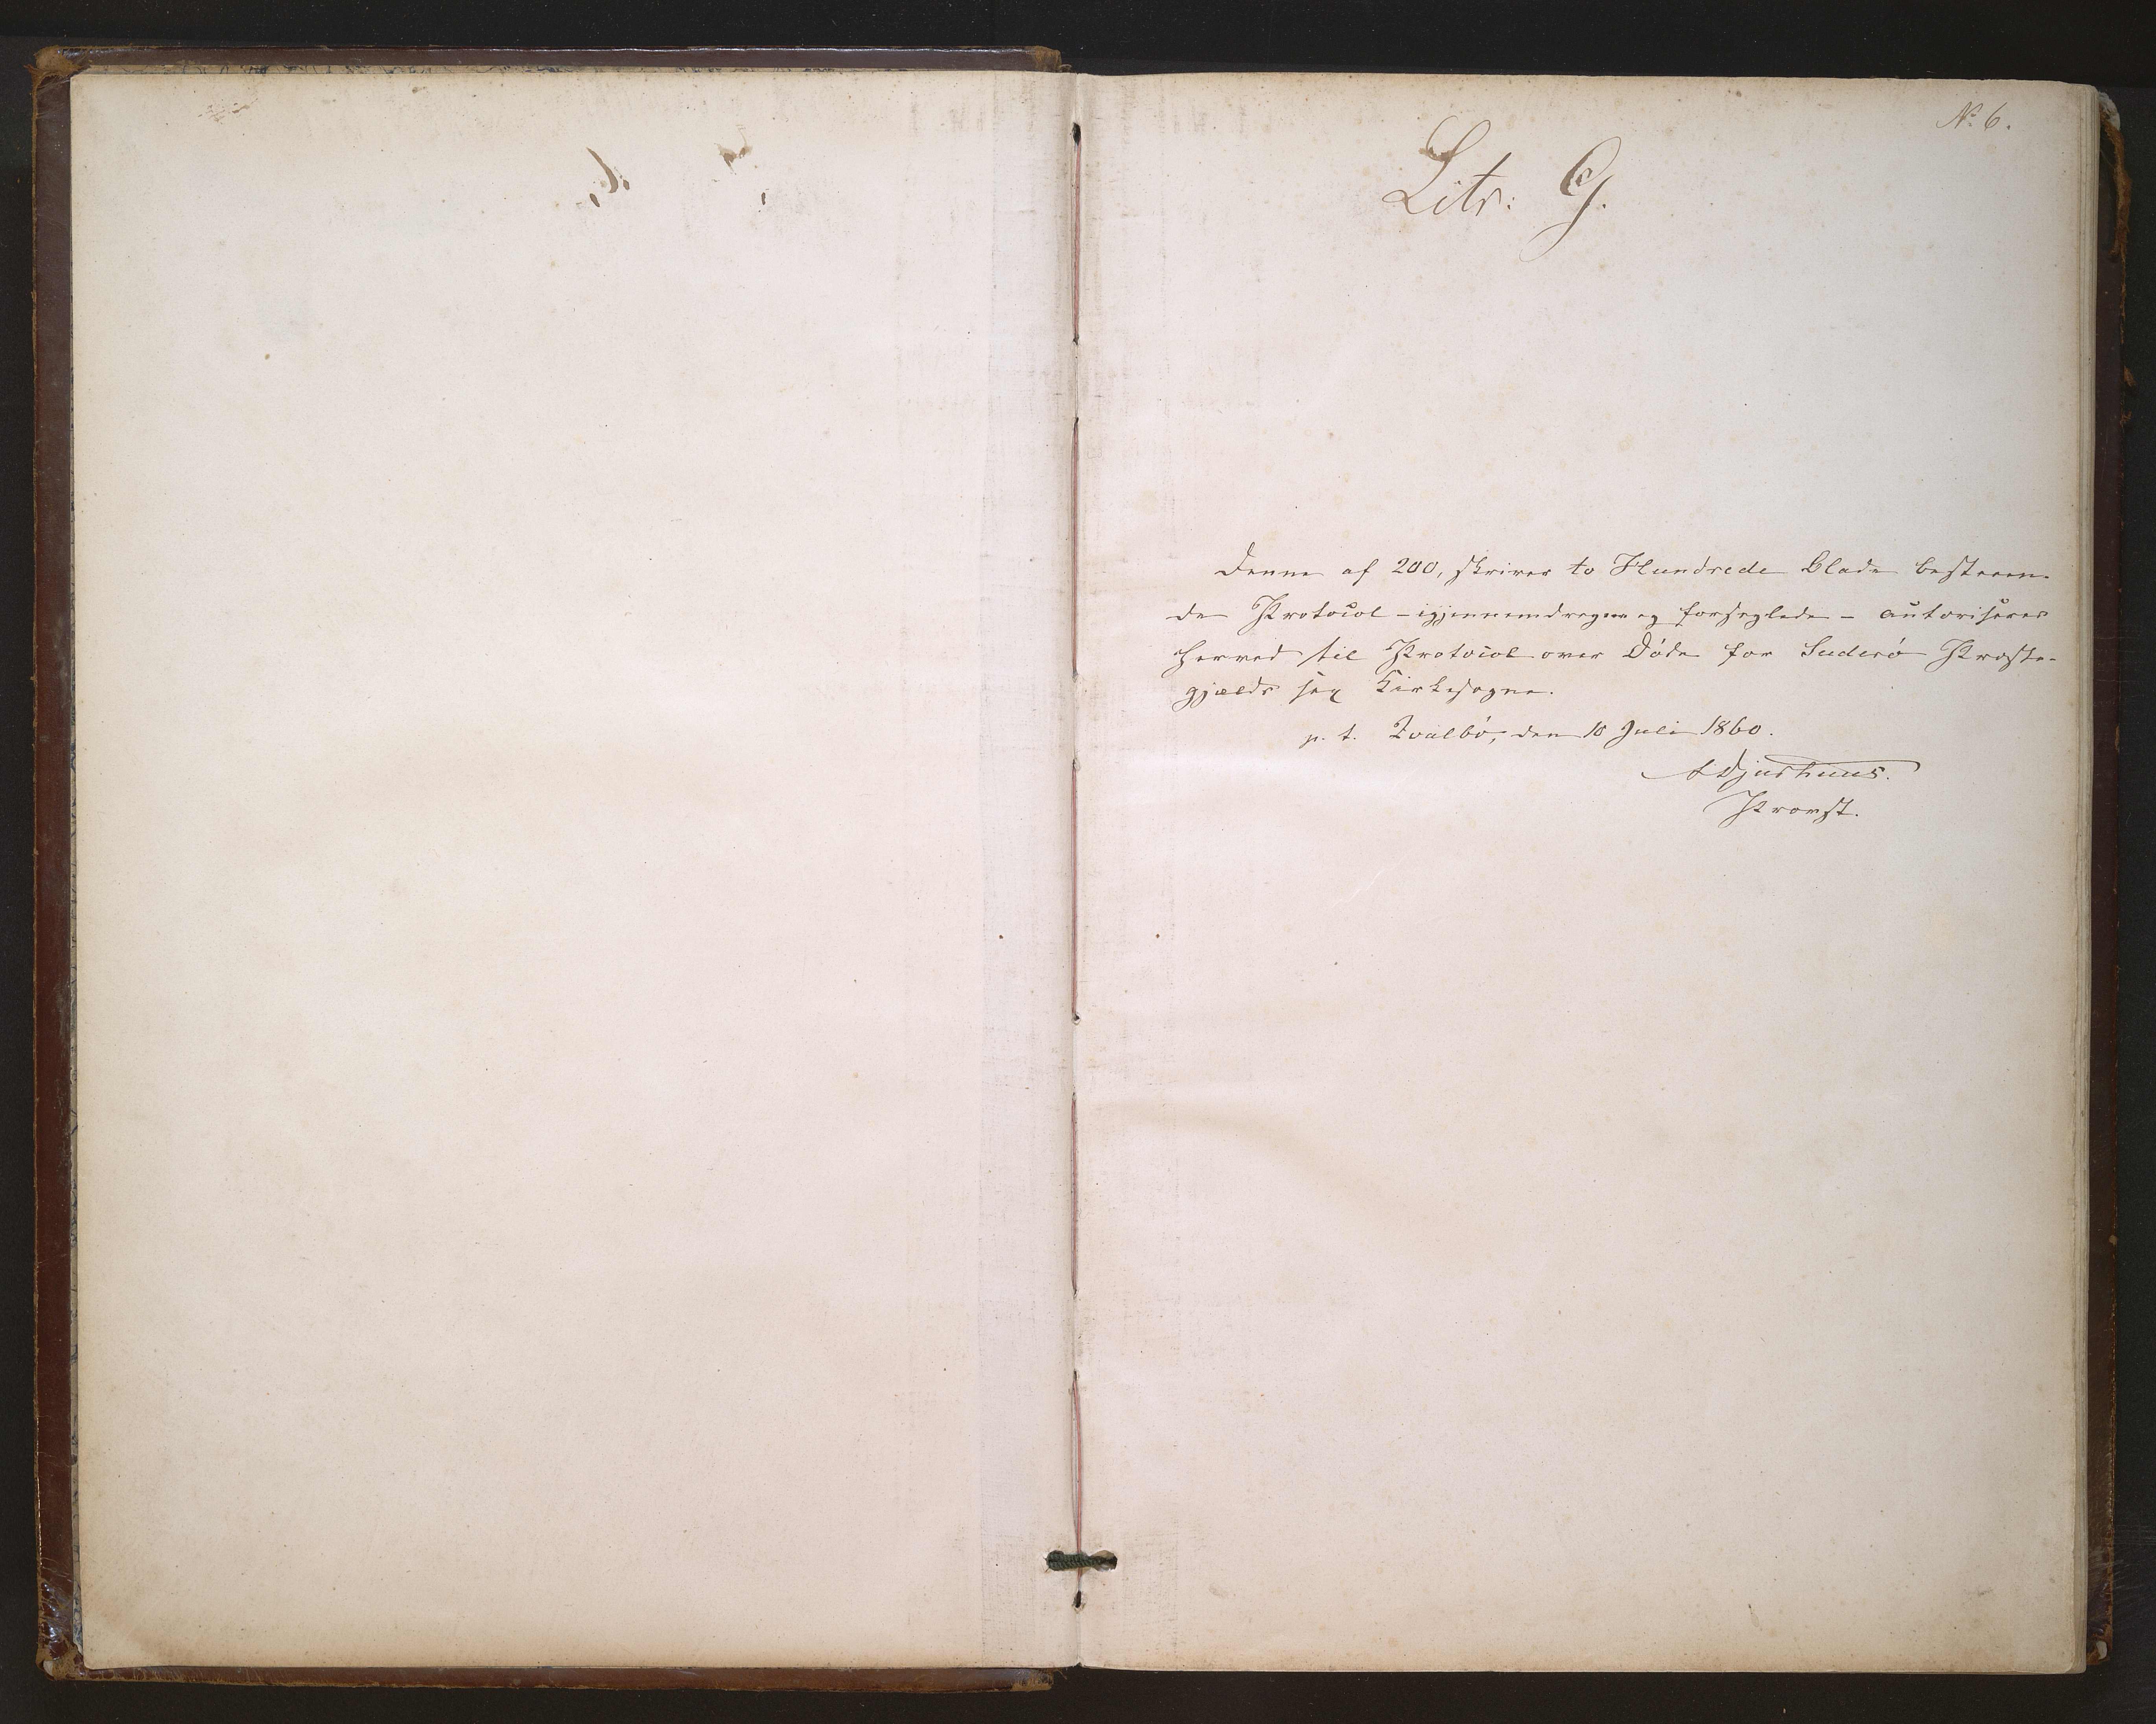 No 6.
Litr: G.
Denne af 200, skriver to Hundrede Blade bestaaen-
de Protocol - igjennemdragen og forseglede - autoriseres
herved til Protocol over Døde for Suderø Præste-
gjælds sex Kirkesogne.
p. t. Qvalbø, den 10 Juli 1860.
Provst.